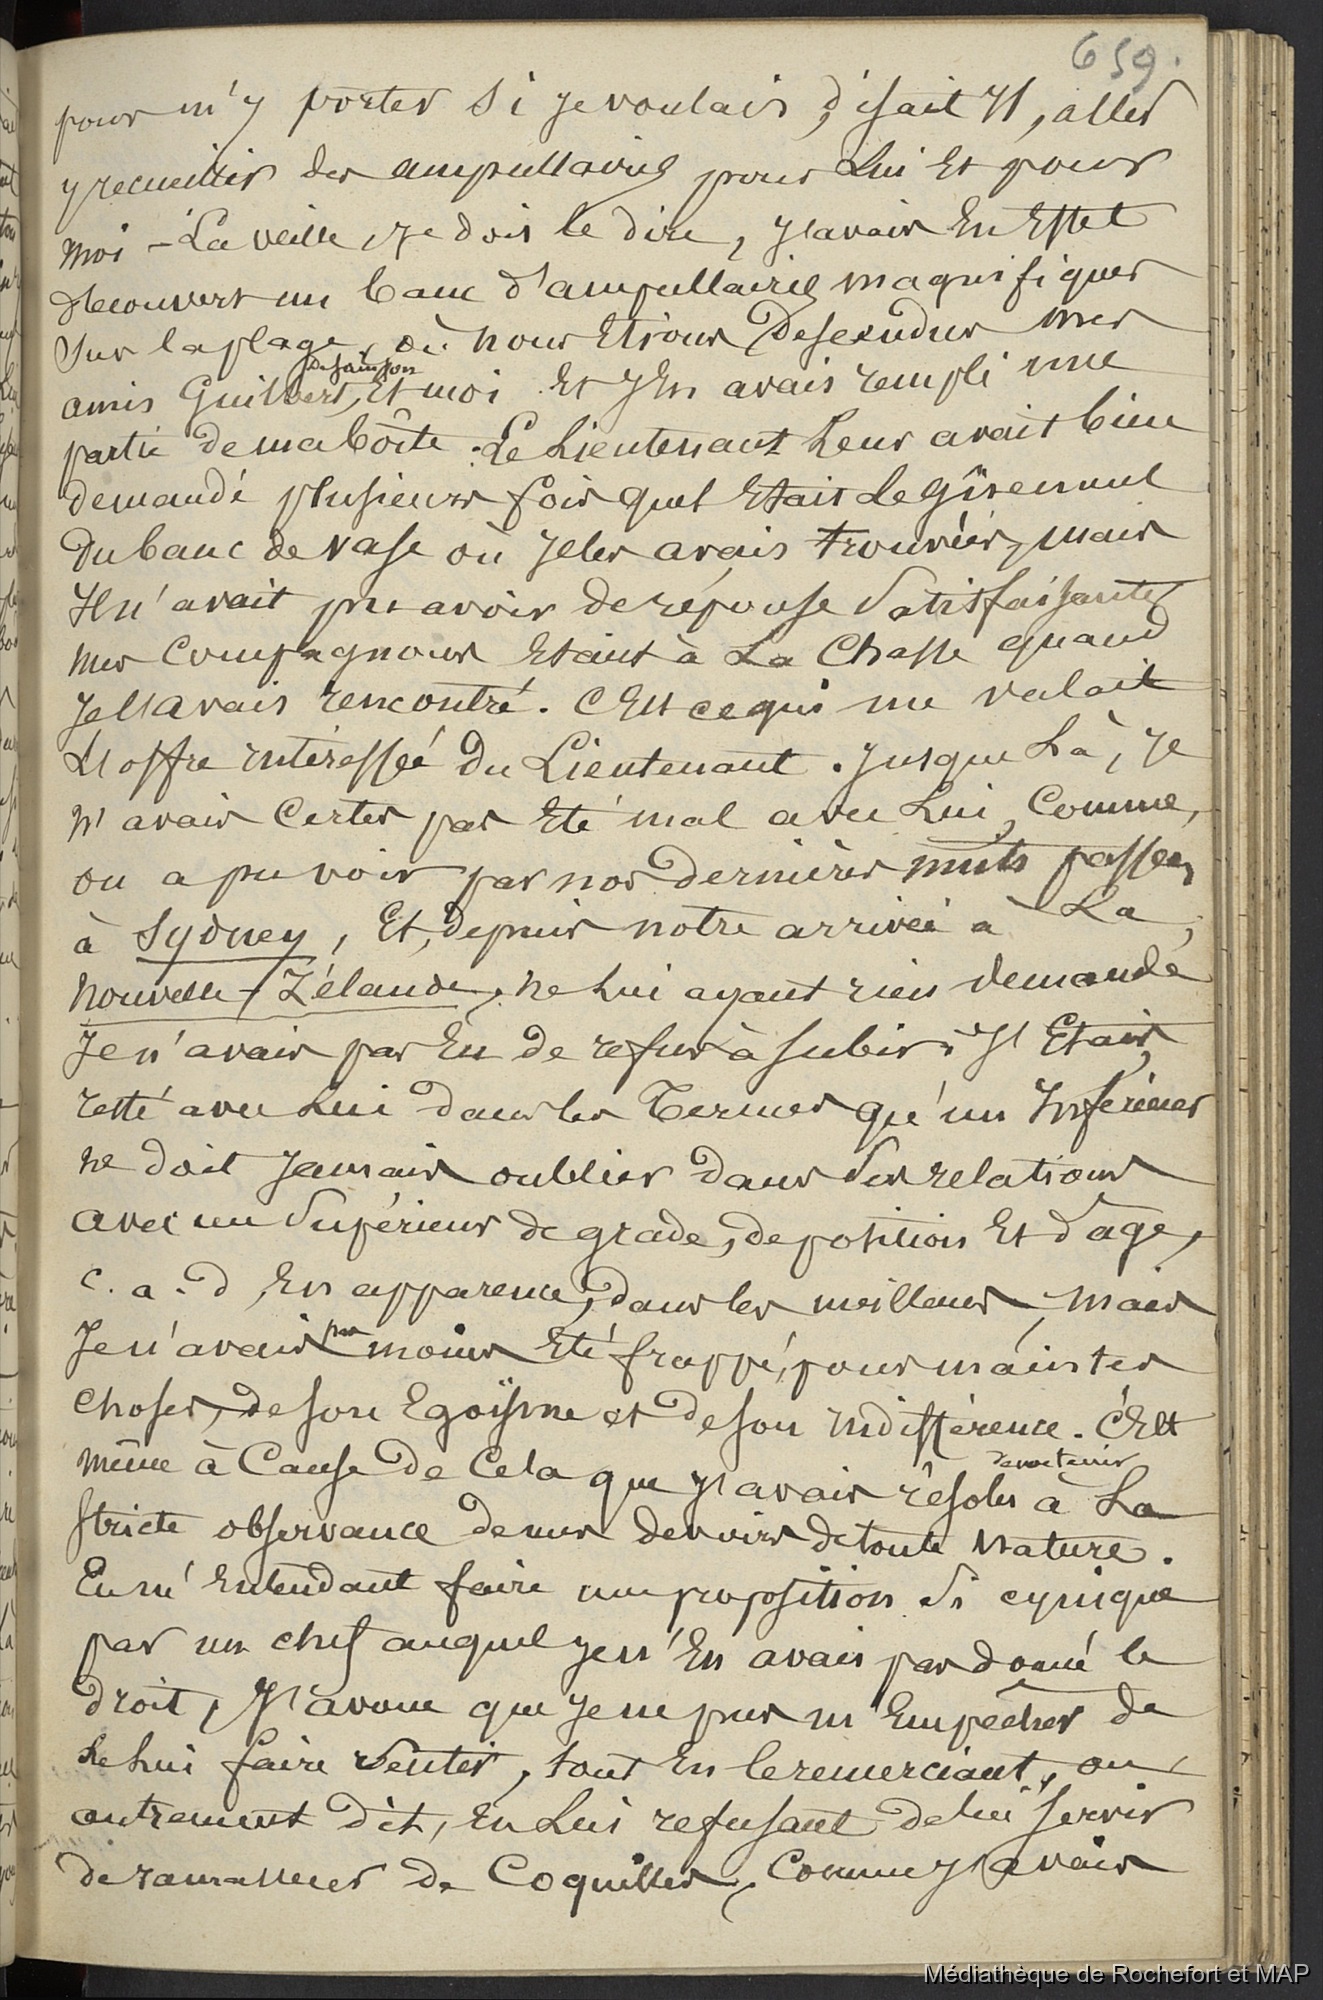 659.
pour m'y porter si je voulais, disait il, aller
y recueillir des ampullaires pour Lui Et pour
moi - La veille, je dois le dire, j'avais En Effet
découvert un banc d'ampullaires magnifiques
Sur la plage, où nous Etions Descendus mes
amis Guilbert, Desainson Et moi Et j'En avais rempli une
partie de ma boîte. Le Lieutenant Leur avait bien
demandé plusieurs fois quel Etait Le gisement
Du banc de vase où je les avais trouvées, mais
Il n'avait pu avoir de réponse Satisfaisante
mes Compagnons Etant à La Chasse quand
je l'avais rencontré. C'Est ce qui me valait
L'offre intéressée Du Lieutenant. Jusque Là, je
n'avais Certes pas Eté mal avec Lui, Comme,
on a pu voir par nos Dernières nuits passées
à Sydney, Et, depuis notre arrivée à La
Nouvelle-Zélande, ne Lui ayant rien demandé
Je n'avais pas Eu de refus à subir. J'Etais,
resté avec Lui dans les Termes qu'un Inférieur
ne doit Jamais oublier Dans Ses relations
avec un Supérieur de grade, de position Et d'age,
c. a. d En apparence, dans les meilleurs, mais
Je n'avais pas moins Eté frappé, pour maintes
Choses, de son Egoïsme et de son indifférence. C'Est
même à Cause De Cela que j'avais résolu de m'en tenir à La
Stricte observance de mes Devoirs de toute Nature.
En m'Entendant faire une proposition Si cynique
par un chef auquel je n'En avais pas donné le
droit, J'avoue que je ne pus m'Empêcher de
Le Lui faire Sentir, tout En le remerciant, ou,
autrement Dit, En Lui refusant de lui servir
de ramasseur de Coquilles, Comme j'avais
Médiathèque de Rochefort et MAP